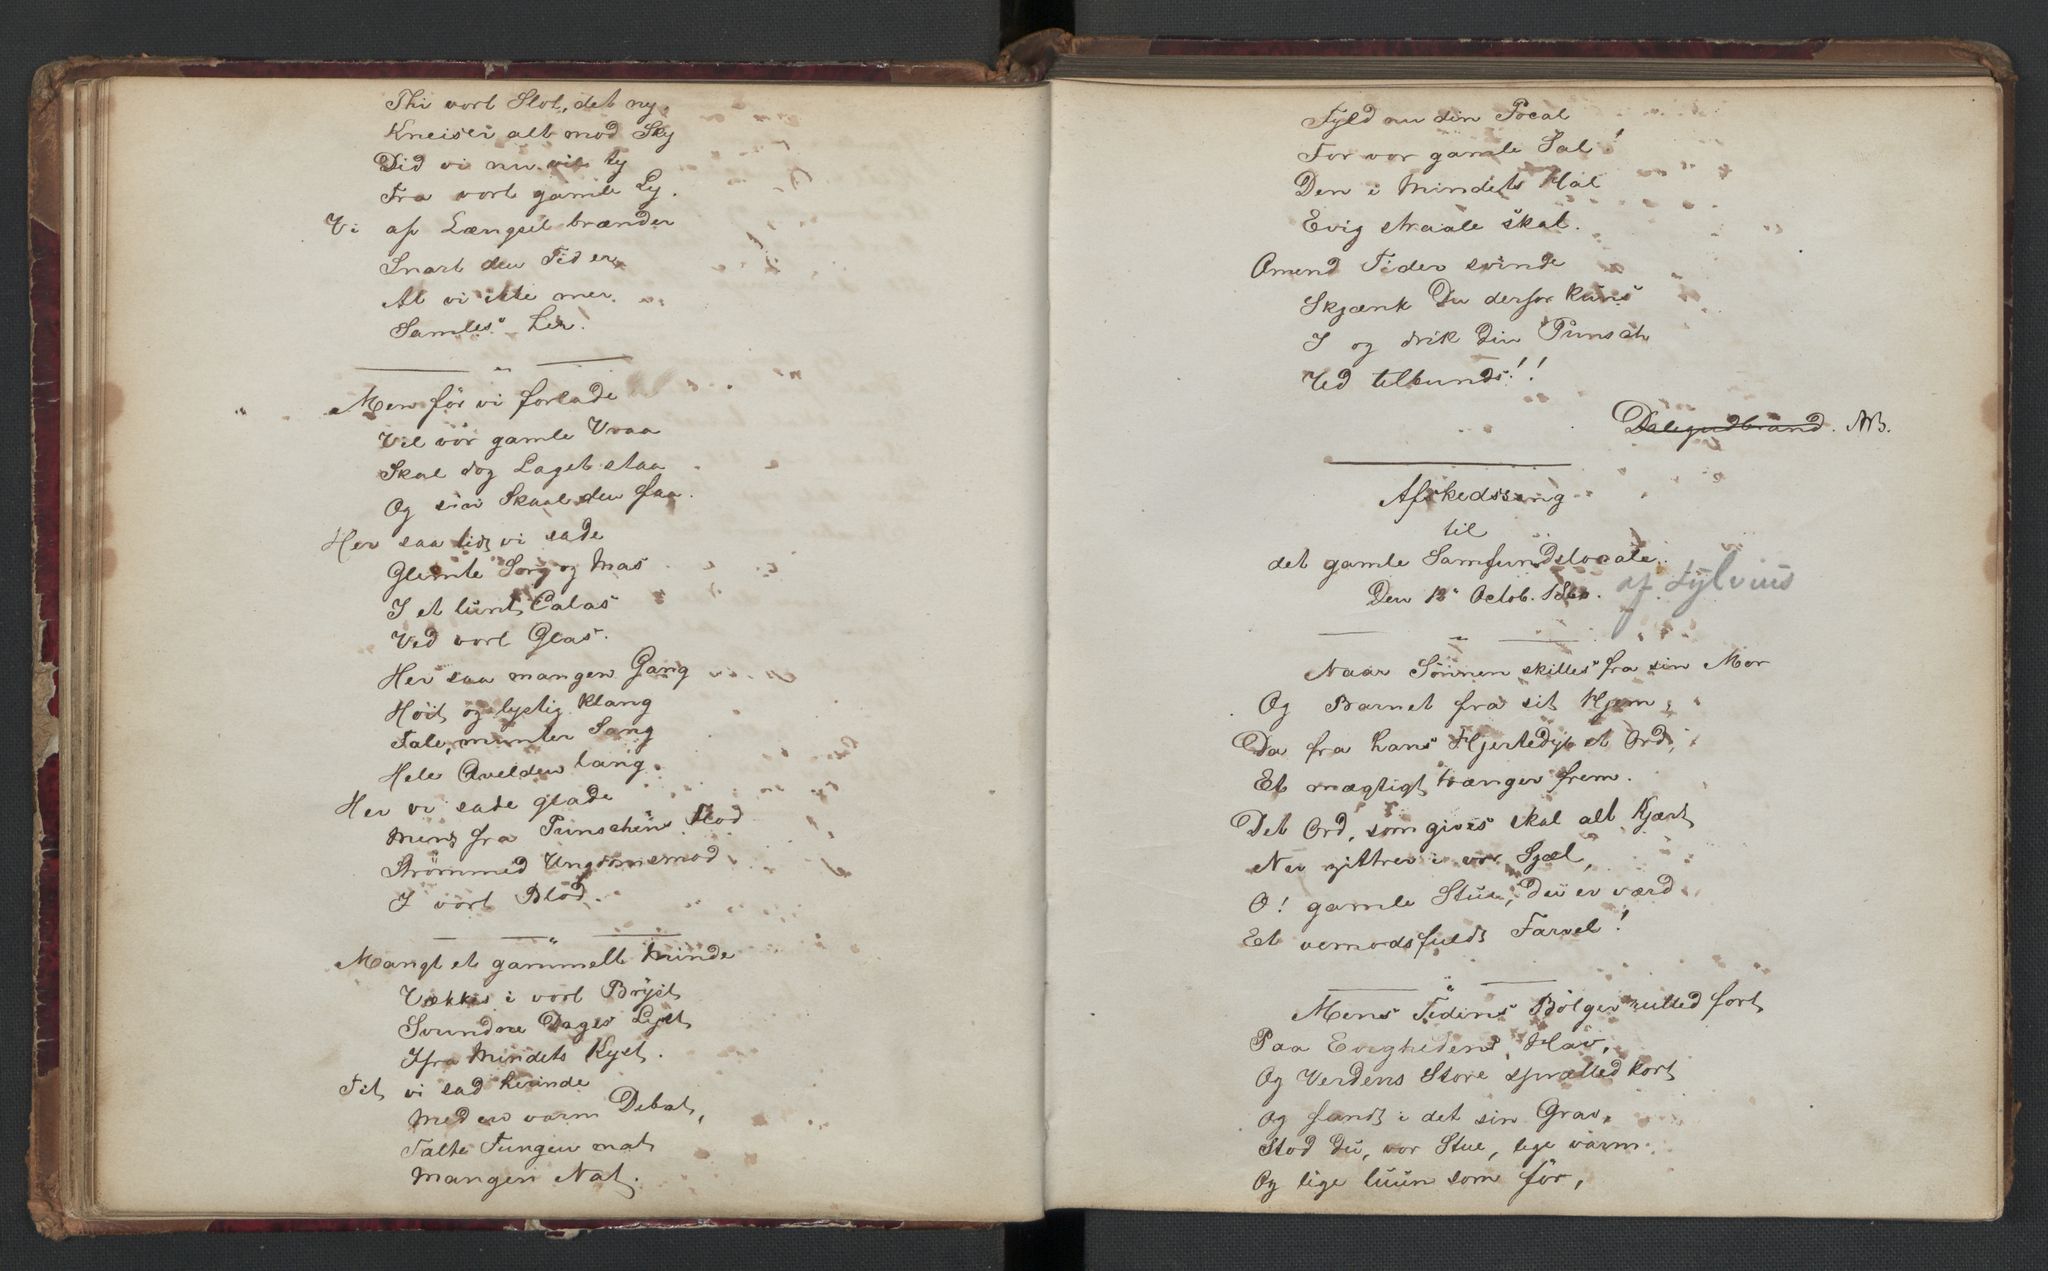 Thi vort Slot, det ny,
Kneiser alt mod Sky
Did vi nu vil ty
Fra vort gamle Ly.
Vi af Længsel brænder
Snart den Tid er
At vi ikke mer
Samles her.
Men før vi forlade
Vil vor gamle Vraa
Skal dog Laget staa
Og sin Skaal den faa.
Her saa tidt vi sade
Glemte Sorg og Mas
I et lunt Calas
Ved vort Glas.
Her saa mangen Gang
Høit og lystig Klang
Tale, munter Sang
Hele Qvelden lang.
Her vi sade glade
Mens fra Punschens Flod
Strømmed Ungdomsmod
I vort Blod.
Mangt et gammelt Minde
Vækkes i vort Bryst
Svundne Dages Lyst
Ifra Mindets Kyst.
Tit vi sad herinde
Med en varm Debat,
Talte Tungen mat
Mangen Nat.
Fyld nu din Pocal
For vor gamle Sal!
Den i Mindets Hal
Evig straale skal.
Omend Tider svinde
Skjænk Du derfor Kuns
I og drik Din Punsch
Ud tilbunds!!
Dalegudbrand. NB.
Afskedssang
til
det gamle Samfundslocale.
Den 13 Octob. 1860. af Sylvius
Naar Sønnen skilles fra sin Mor
Og Barnet fra sit Hjem,
Da fra hans Hjertedyb et Ord,
Et mægtigt trænger frem.
Det Ord, som gives skal alt Kjært
Nu zittrer i vor Sjæl,
O! gamle Stue, Du er værd
Et vemodsfuldt Farvel!
Mens Tidens Bølger rulled fort
Paa Evighedens Hav,
Og Verdens Store sprælled kort
Og fandt i det sin Grav,
Stod Du, vor Stue, lige varm
Og lige luun som før,